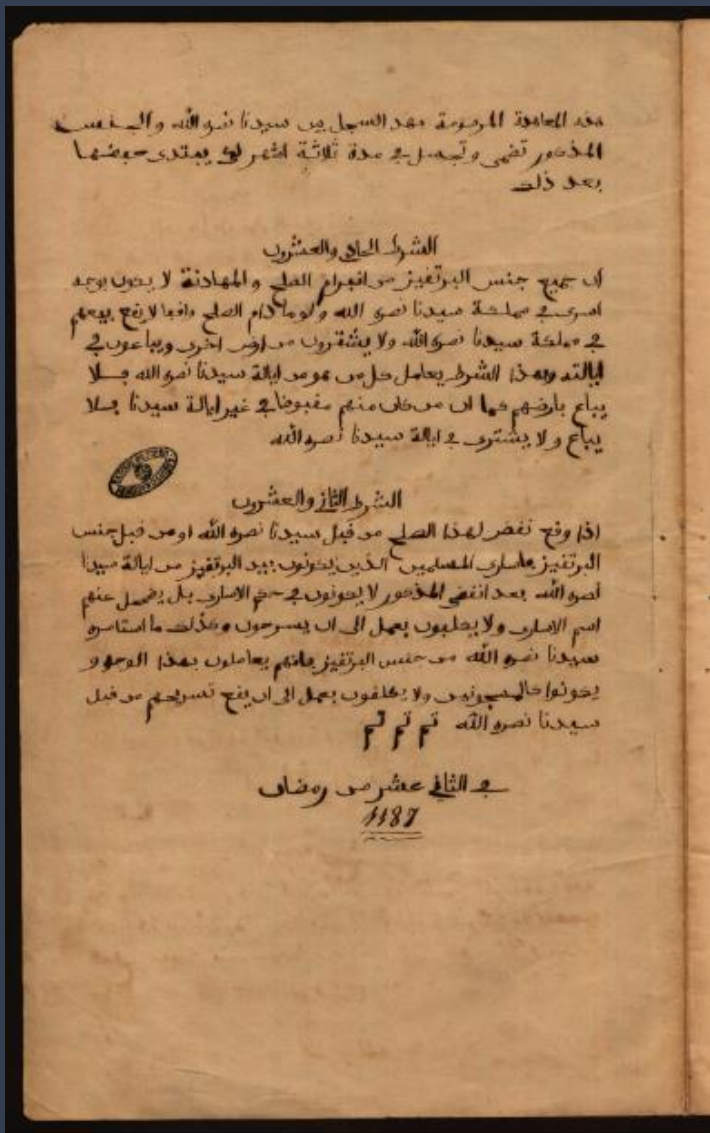 هذه المعاهدة المرسومة بهذا السجل بين سيدنا نصره الله والجنس
المذكور تمضى وتجعل في مدة ثلاثة اشهر لكي يبتدى حفظها
بعد ذلك
الشرط الحادي والعشرون
ان جميع جنس البرتقيز من انبرام الصلح والمهادنة لا يكون بوجه
اسرى في مملكة سيدنا نصره الله ولو ما دام الصلح واقعا لا يقع بيعهم
في مملكة سيدنا نصره الله ولا يشترون من ارض اخرى ويباعون في
ايالته وبهذا الشرط يعامل كل من هو من ايالة سيدنا نصره الله فلا
يباع بارضهم كما ان من كان منهم مقبوضا في غير ايالة سيدنا فلا
يباع ولا يشترى في ايالة سيدنا نصره الله
الشرط الثاني والعشرون
اذا وقع نقض لهذا الصلح من قبل سيدنا نصره الله او من قبل جنس
البرتقيز فاسارى المسلمين الذين يكونون بيد البرتقيز من ايالة سيدنا
نصره الله بعد انقضى المذكور لا يكونون في حكم الاسارى بل يضمحل عنهم
اسم الاسارى ولا يكلفون بعمل الى ان يسرحون وكذلك ما استاسره
سيدنا نصره الله من جنس البرتقيز فانهم يعاملون بهذا الوجه و
يكونوا كالمسجونين ولا يكلفون بعمل الى ان يقع تسريحهم من قبل
سيدنا نصره الله تم تم تم
في الثاني عشر من رمضان
1187